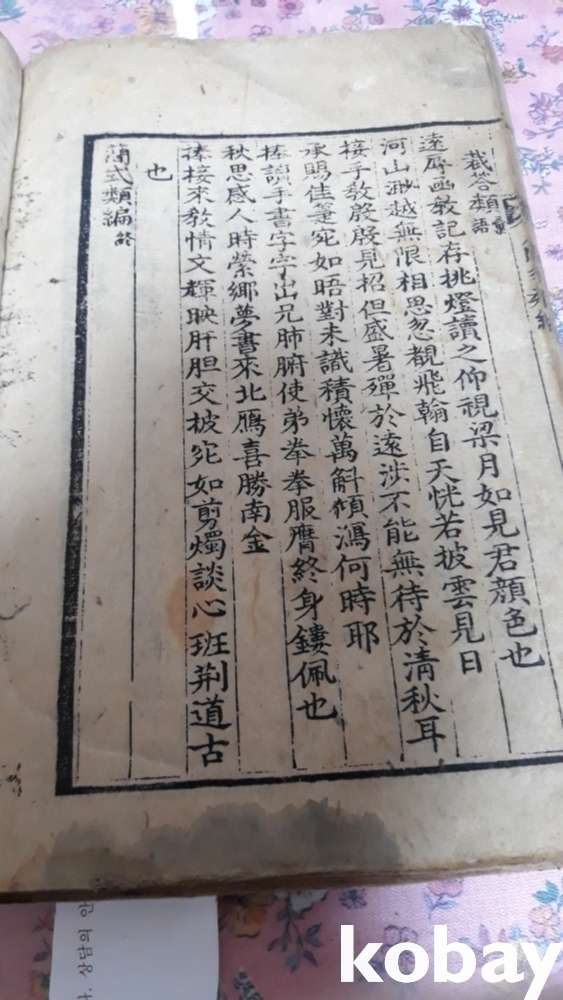 裁答類彙語
遠辱幽敎記存挑燈讀之仰視梁月如見君顔色也
河山渺越無限相思忽覩飛翰自天恍若披雲見日
接手敎殷殷見招但盛暑殫於遠涉不能無待於清秋耳
承賜佳箋宛如晤對未識積懷萬斛傾瀉何時耶
捧讀手書字字出兄肺腑使弟拳拳服膺終身鏤佩也
秋思感人時縈鄉夢書來北鴈喜勝南金
捧接來敎情文輝映肝胆交披宛如剪燭談心班荆道古
也
簡式類編終
상담의 안
kobay